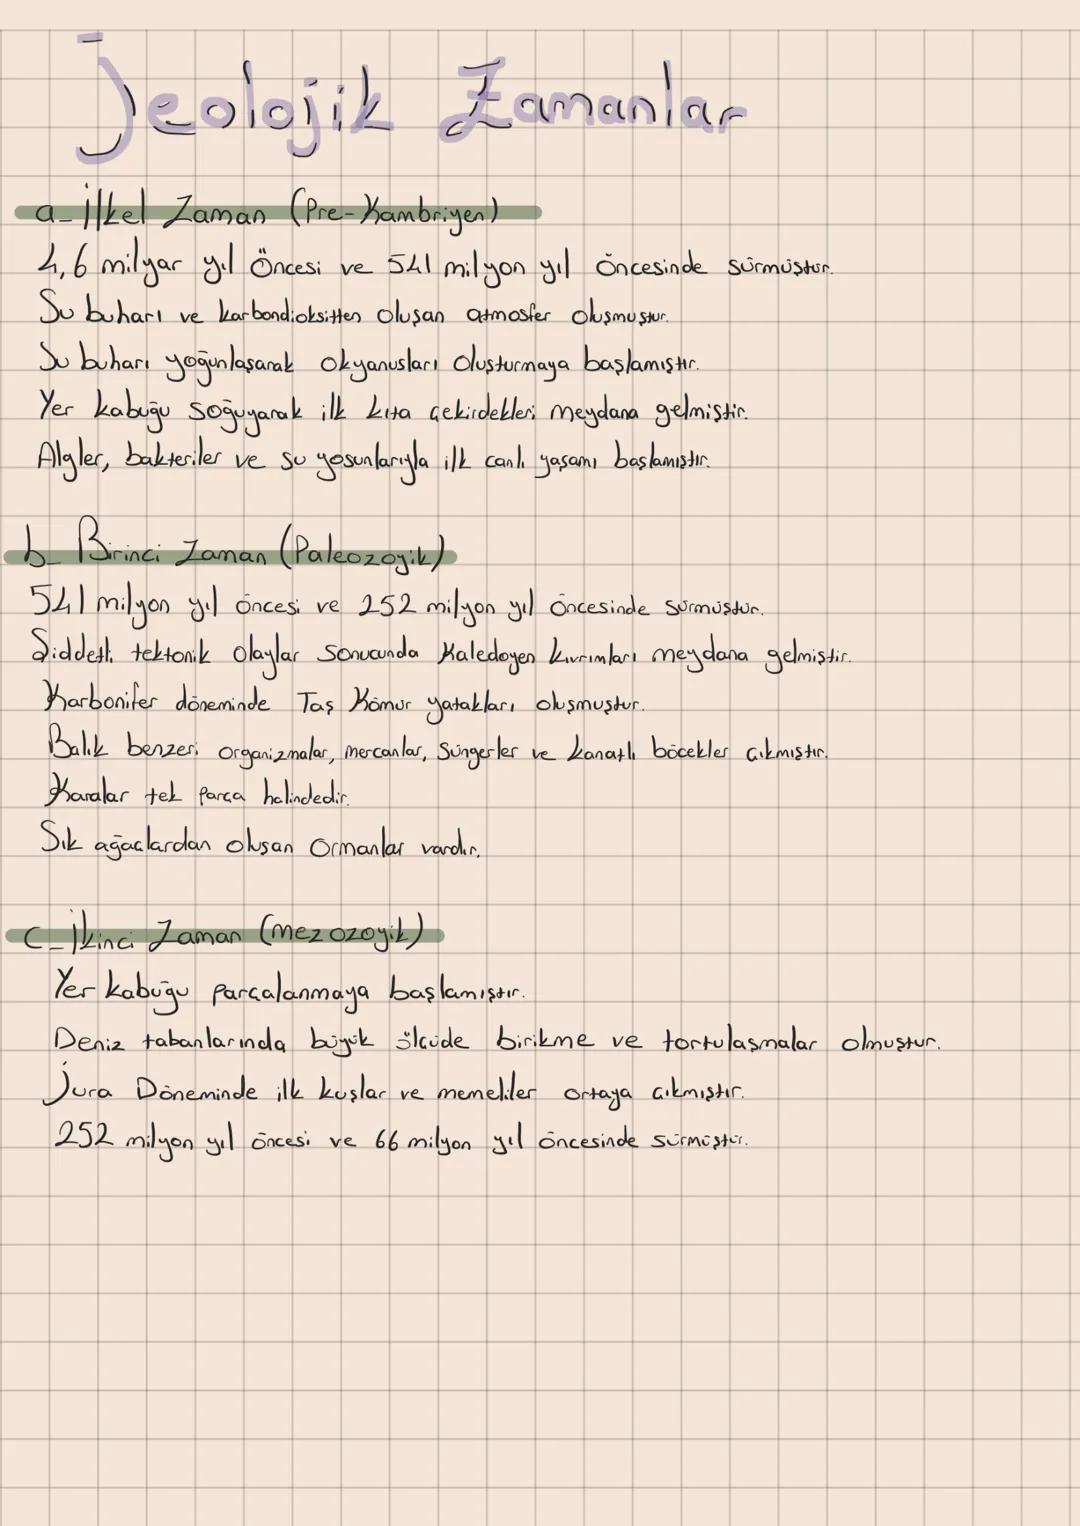 Jeolojik Zamanlar
a_ İlkel Zaman (Pre-Kambriyen)
4,6 milyar yıl Öncesi ve 541 milyon yıl öncesinde sürmüştür.
Su buharı ve karbondioksitten oluşan atmosfer oluşmuştur.
Su buharı yoğunlaşarak okyanusları oluşturmaya başlamıştır.
Yer kabuğu soğuyarak ilk kıta çekirdekleri meydana gelmiştir.
Algler, bakteriler ve su yosunlarıyla ilk canlı yaşamı başlamıştır.
b_ Birinci Zaman (Paleozoyik)
541 milyon yıl öncesi ve 252 milyon yıl öncesinde sürmüştür.
Şiddetli tektonik olaylar sonucunda Kaledoyen kıvrımları meydana gelmiştir.
Karbonifer döneminde Taş Kömür yatakları oluşmuştur.
Balık benzeri organizmalar, mercanlar, Süngerler ve kanatlı böcekler çıkmıştır.
Karalar tek parça halindedir.
Sık ağaçlardan oluşan Ormanlar vardır.
c_ İkinci Zaman (Mezozoyik)
Yer kabuğu parçalanmaya başlamıştır.
Deniz tabanlarında büyük ölçüde birikme ve tortulaşmalar olmuştur.
Jura Döneminde ilk kuşlar ve memeliler ortaya çıkmıştır.
252 milyon yıl öncesi ve 66 milyon yıl öncesinde sürmüştür.